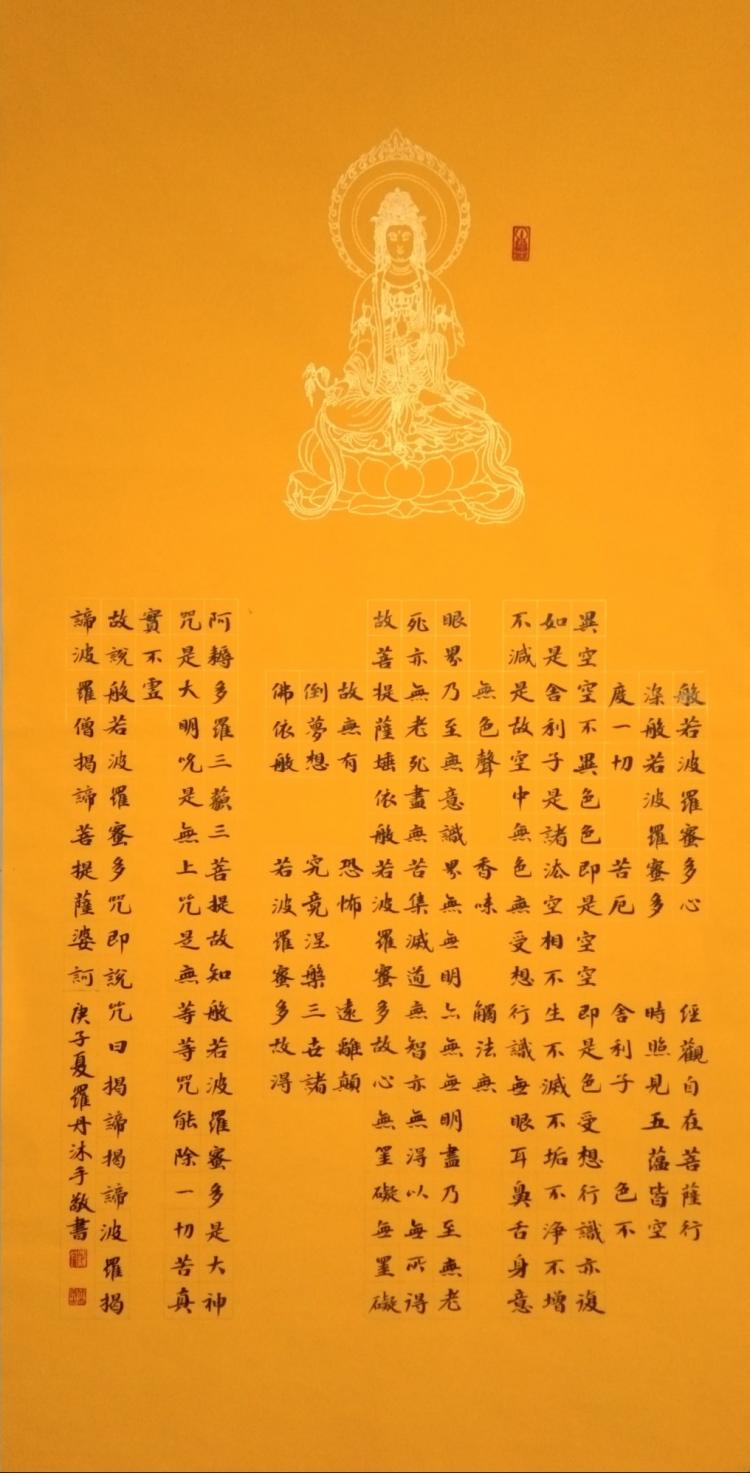 般若波羅蜜多心經觀自在菩薩行
深般若波羅蜜多時照見五蘊皆空
度一切苦厄舍利子色不
異空空不異色色即是空空即是色受想行識亦復
如是舍利子是諸法空相不生不滅不垢不淨不增
不減是故空中無色無受想行識無眼耳鼻舌身意
無色聲香味觸法無
眼界乃至無意識界無無明亦無無明盡乃至無老
死亦無老死盡無苦集滅道無智亦無得以無所得
故菩提薩埵依般若波羅蜜多故心無罣礙無罣礙
故無有恐怖遠離顛
倒夢想究竟涅槃三世諸
佛依般若波羅蜜多故得
阿耨多羅三藐三菩提故知般若波羅蜜多是大神
咒是大明咒是無上咒是無等等咒能除一切苦真
實不虛
故說般若波羅蜜多咒即說咒曰揭諦揭諦波羅揭
諦波羅僧揭諦菩提薩婆訶 庚子夏羅丹沐手敬書